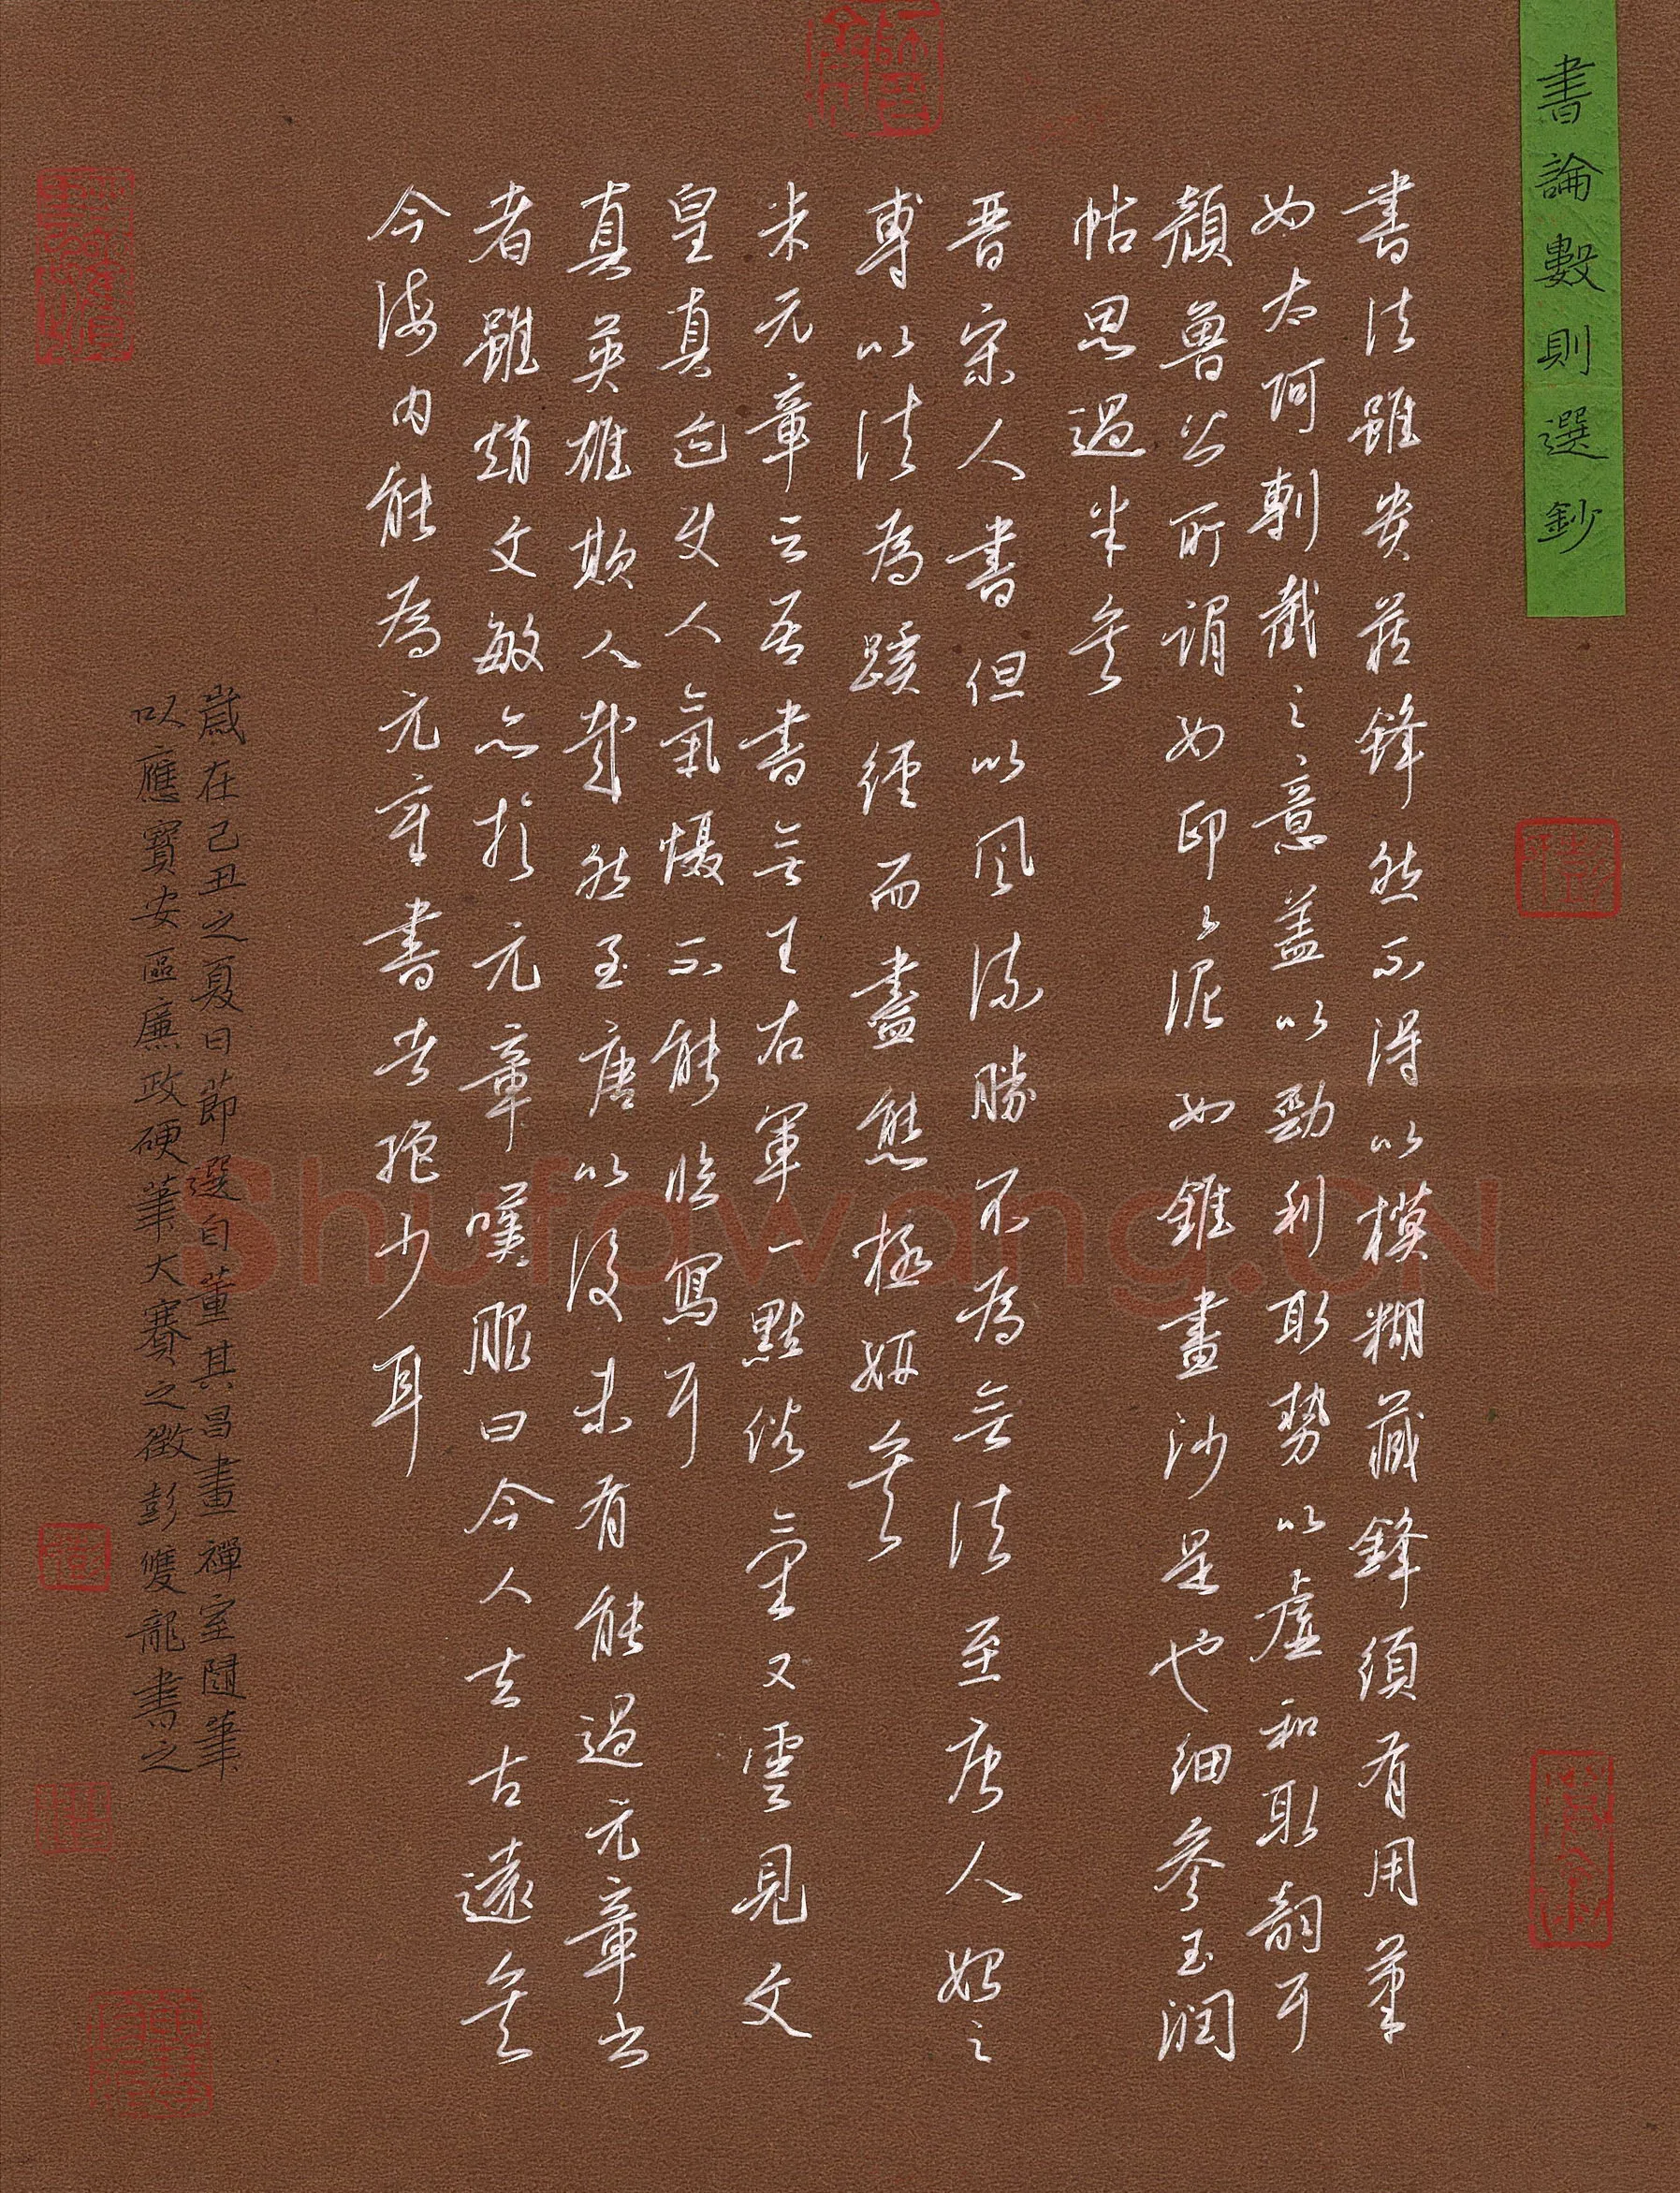 書論數則選鈔
書法雖貴藏鋒然不得以模糊藏鋒須有用筆
如太阿剸截之意蓋以勁利取勢以虛和取韻耳
顏魯公所謂如印々泥如錐畫沙是也細參玉潤
帖思過半矣
晋宋人書但以風流勝不為無法至唐人始之
專以法為蹊徑而盡態極妍矣
米元章云吾書無王右軍一點俗氣又雲見文
皇真迹使人氣懾不能臨寫耳
真英雄欺人哉然至唐以後未有能過元章書
者雖趙文敏亦於元章嘆服曰今人去古遠矣
今海内能為元章書者絕少耳
歲在己丑之夏日節選自董其昌畫禪室隨筆
以應寶安區廉政硬筆大賽之徵彭雙龍書之
Shufawang.CN